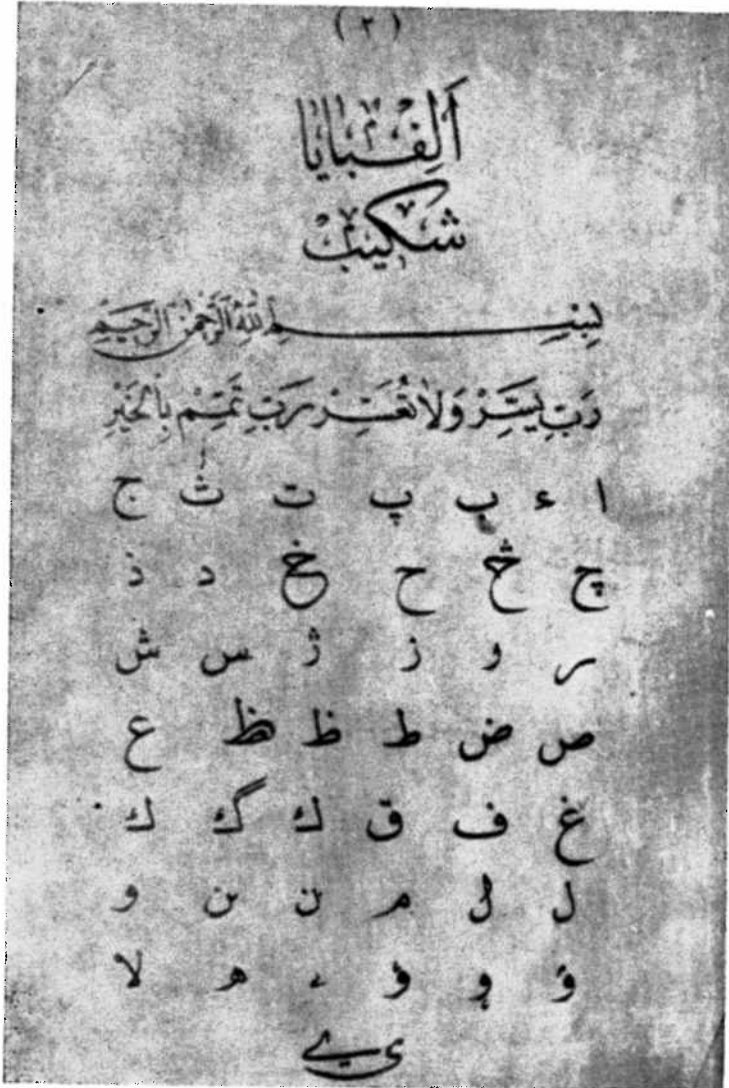 (٢)
اَلِفْبَايَا
شكيب
بِسْمِ اللّٰهِ الرَّحْمٰنِ الرَّحِيمِ
رَبِّ يَسِّرْ وَلَا تُعَسِّرْ رَبِّ تَمِّمْ بِالْخَيْرِ
ا ء ب پ ت ث ج
چ څ ح خ د ذ
ر و ز ژ س ش
ص ض ط ظ ظ ع
غ ف ق ك گ ك
ل ل م ن ن و
ۏ و ؤ ء ه لا
ی ے